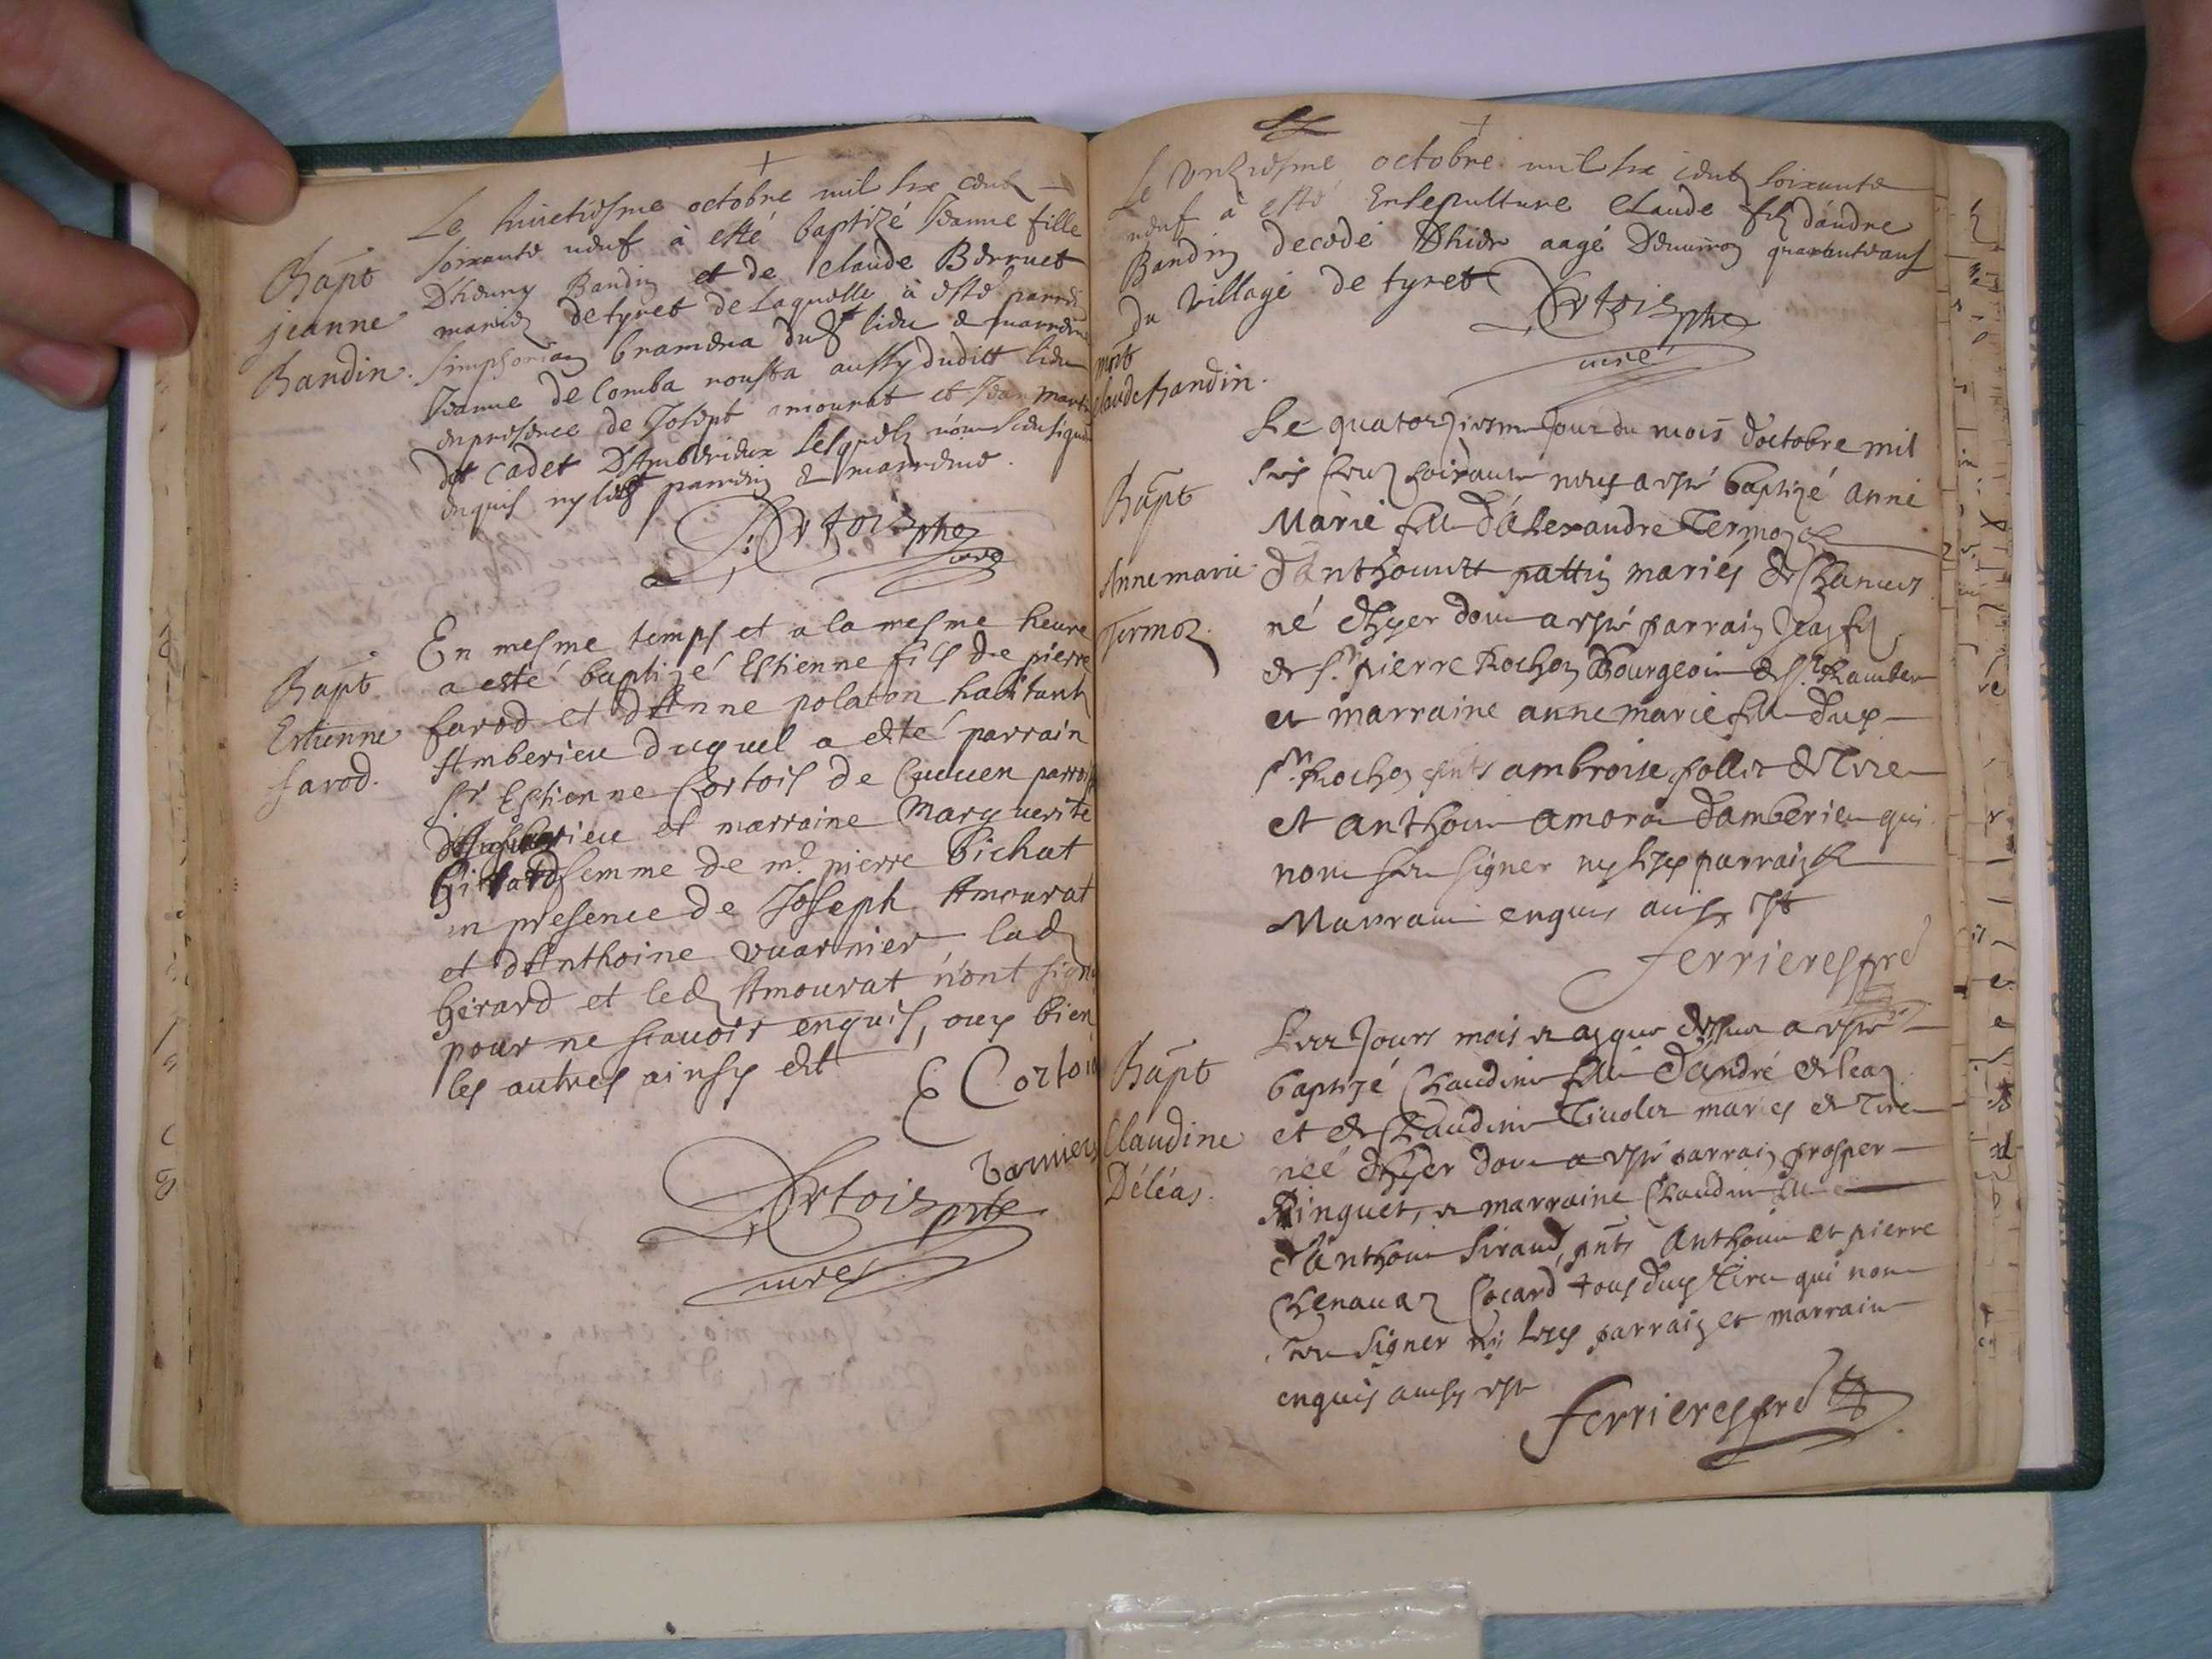 +
Le huictiesme octobre mil six centz
soixante neuf à esté baptizé Jeanne fille
Dheury Bandin et de Claude Berruet
mariez de tyret de Laquelle à esté parrein
simphorian bramera dudt lieu & marreine
Jeanne de Comba rousta aussy duditt lieu
en presence de Josept amourat et Jean
dit Cadet DAmberieux Lesquelz n'ont sceu signer
enquis ny lesdt parrein & marreine.
Cortois pbr
curé
Bapt
jeanne
Bandin.
En mesme temps et a la mesme heure
a esté baptizé Estienne fils de pierre
farod et dAnne polaton habitants
Amberieu duquel a esté parrain
Sr Estienne Cortois de Cuuuen
et marraine Marguerite
Girard femme de me pierre bichat
en presence de Joseph Amourat
et dAnthoine vuarnier lad
Girard et led Amourat n'ont signé
pour ne scauoir enquis, ouy bien
les autres ainsy est
E Cortois
Varnier
Cortois pbr
curé
Bapt
Estienne
farod.
+
Le Unziesme octobre mil six centz soixante
neuf a esté Ensepulture Claude filz dandre
Bandin decedé Dhier aagé Denuiron quarante ans
du village de tyret
Cortois pbr
curé
mort
Claude bandin.
Le quatorziesme Jour du mois d'octobre mil
six centz soixante neuf a esté baptizé anne
Marie fille d'alexandre Termoz &
d'anthoinette pattin mariés de
né dhyer dont a esté parrain Jean filz
de Sr pierre Rochon Bourgeois de St Rambert
et marraine anne marie fille dud
Sr Rochon pnts ambroise follier de Tire
et anthoine amora d'amberieu qui
n'ont sceu signer ny lesd parrain &
Marraine enquis ainsy est
ferrieres pre
Bapt
Anne marie
Termoz.
Les Jours mois et an que dessus a esté
baptizé Claudine fille d'andré de leaz
et de Claudine Tiuolier mariés de Tire
neé dhyer dont a esté parrain prosper
Ringuet, et marraine Claudine fille
d'anthoine Siraud, pnts Anthoine et pierre
Chenauaz Cocard tous dud Tire qui n'ont
sceu signer ni lesd parrain et marraine
enquis ainsy est
ferrieres pre
Bapt
Claudine
Déléas.